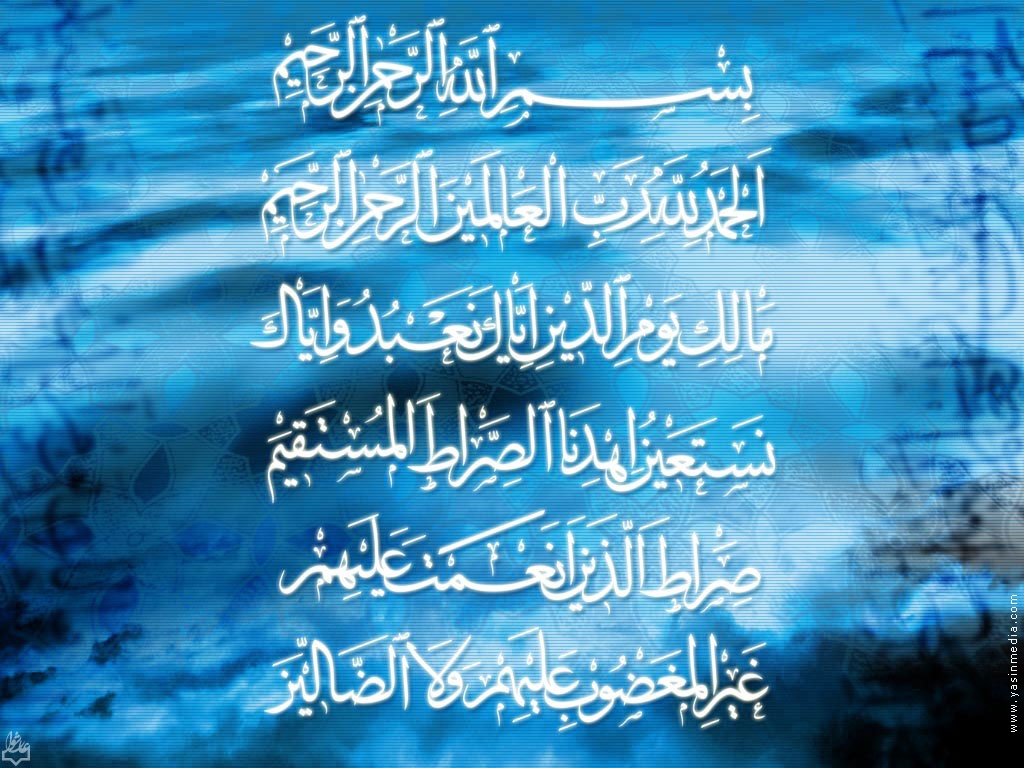 بِسْمِ ٱللَّهِ ٱلرَّحْمٰنِ ٱلرَّحِيمِ
اَلْحَمْدُ لِلَّهِ رَبِّ الْعَالَمِينَ ٱلرَّحْمٰنِ ٱلرَّحِيمِ
مَالِكِ يَوْمِ ٱلدِّينِ اِيَّاكَ نَعْبُدُ وَاِيَّاكَ
نَسْتَعِينُ اِهْدِنَا ٱلصِّرَاطَ الْمُسْتَقِيمَ
صِرَاطَ ٱلَّذِينَ اَنْعَمْتَ عَلَيْهِمْ
غَيْرِ الْمَغْضُوبِ عَلَيْهِمْ وَلَا ٱلضَّالِّينَ
www.yasinmedia.com